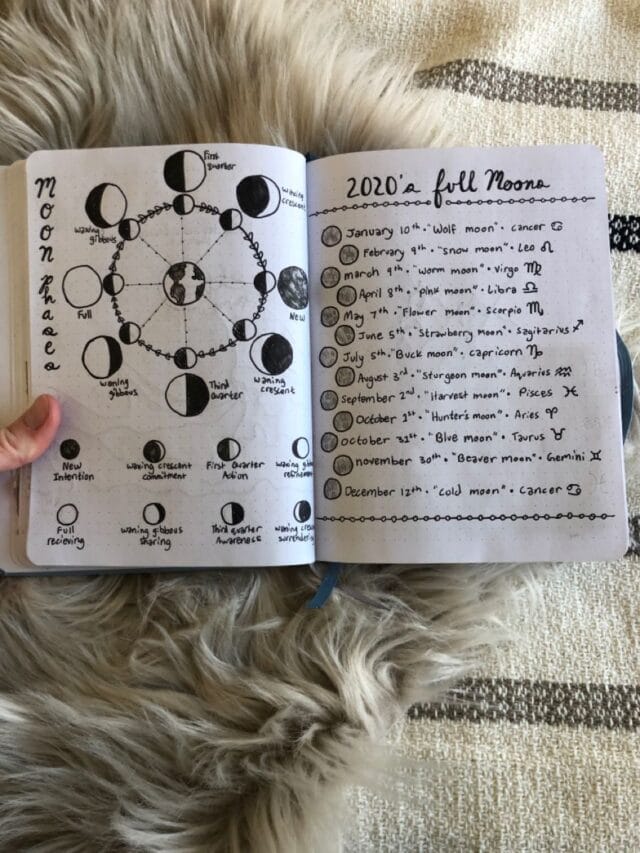 Moon Phases
First
quarter
waxing
crescent
waxing
gibbous
Full
New
waning
gibbous
Third
quarter
waning
crescent
New
Intention
waxing crescent
commitment
First Quarter
Action
waxing
refinement
Full
recieving
waning gibbous
sharing
Third quarter
Awareness
waning
2020's full Moons
January 10th • "Wolf moon" • cancer ♋
February 9th • "snow moon" • Leo ♌
march 9th • "worm moon" • virgo ♍
April 8th • "pink moon" • Libra ♎
May 7th • "Flower moon" • Scorpio ♏
June 5th • "Strawberry moon" • Sagitarius ♐
July 5th • "Buck moon" • capricorn ♑
August 3rd • "Sturgeon moon" • Aquarius ♒
September 2nd • "Harvest moon" • Pisces ♓
October 1st • "Hunter's moon" • Aries ♈
October 31st • "Blue moon" • Taurus ♉
november 30th • "Beaver moon" • Gemini ♊
December 12th • "cold moon" • Cancer ♋